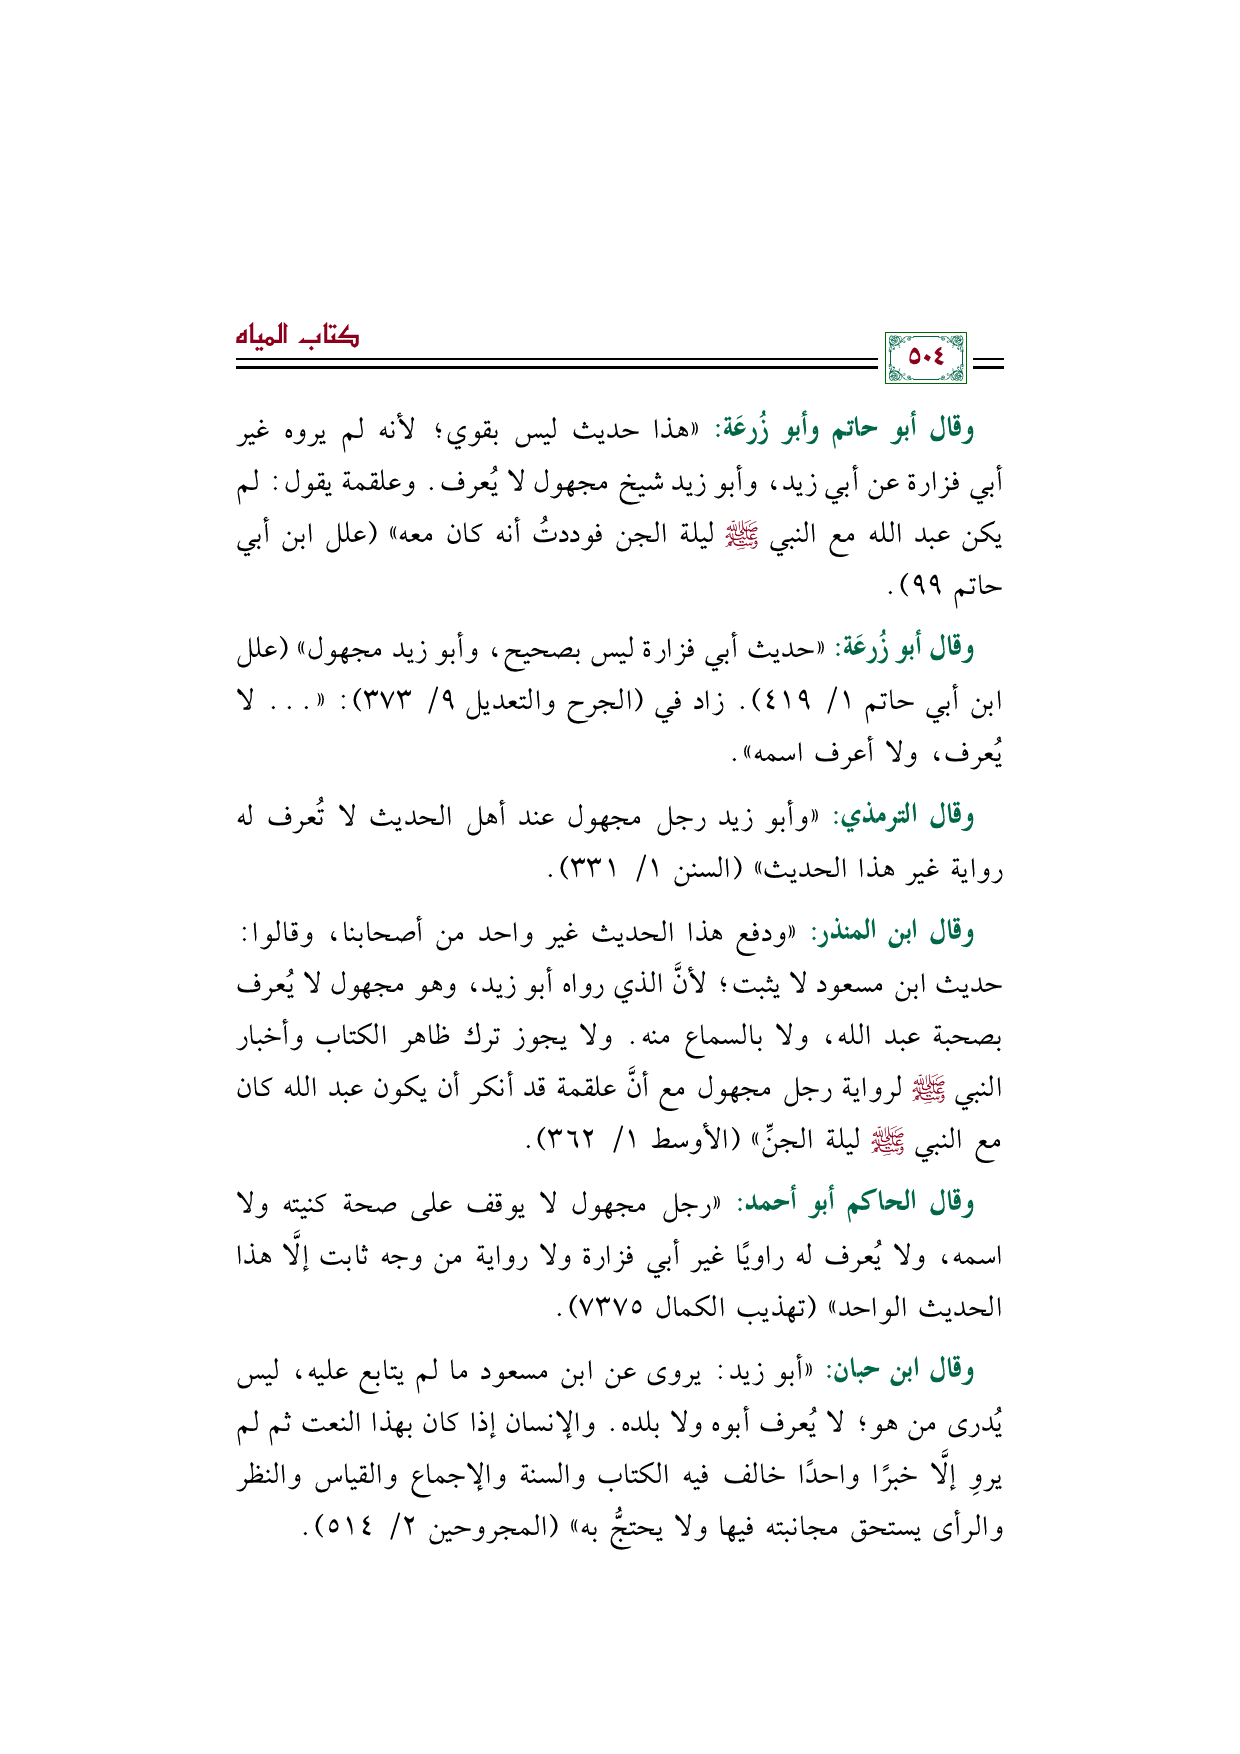 كتاب المياه
٥٠٤
وقال أبو حاتم وأبو زُرعَة: «هذا حديث ليس بقوي؛ لأنه لم يروه غير
أبي فزارة عن أبي زيد، وأبو زيد شيخ مجهول لا يُعرف. وعلقمة يقول: لم
يكن عبد الله مع النبي ﷺ ليلة الجن فوددتُ أنه كان معه» (علل ابن أبي
حاتم ٩٩).
وقال أبو زُرعَة: «حديث أبي فزارة ليس بصحيح، وأبو زيد مجهول» (علل
ابن أبي حاتم ١/ ٤١٩). زاد في (الجرح والتعديل ٩/ ٣٧٣): «... لا
يُعرف، ولا أعرف اسمه».
وقال الترمذي: «وأبو زيد رجل مجهول عند أهل الحديث لا تُعرف له
رواية غير هذا الحديث» (السنن ١/ ٣٣١).
وقال ابن المنذر: «ودفع هذا الحديث غير واحد من أصحابنا، وقالوا:
حديث ابن مسعود لا يثبت؛ لأنَّ الذي رواه أبو زيد، وهو مجهول لا يُعرف
بصحبة عبد الله، ولا بالسماع منه. ولا يجوز ترك ظاهر الكتاب وأخبار
النبي ﷺ لرواية رجل مجهول مع أنَّ علقمة قد أنكر أن يكون عبد الله كان
مع النبي ﷺ ليلة الجنِّ» (الأوسط ١/ ٣٦٢).
وقال الحاكم أبو أحمد: «رجل مجهول لا يوقف على صحة كنيته ولا
اسمه، ولا يُعرف له راويًا غير أبي فزارة ولا رواية من وجه ثابت إلَّا هذا
الحديث الواحد» (تهذيب الكمال ٧٣٧٥).
وقال ابن حبان: «أبو زيد: يروى عن ابن مسعود ما لم يتابع عليه، ليس
يُدرى من هو؛ لا يُعرف أبوه ولا بلده. والإنسان إذا كان بهذا النعت ثم لم
يروِ إلَّا خبرًا واحدًا خالف فيه الكتاب والسنة والإجماع والقياس والنظر
والرأى يستحق مجانبته فيها ولا يحتجُّ به» (المجروحين ٢/ ٥١٤).